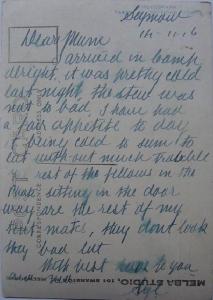 Seymour
14-11-16
Dear Mum
I arrived in camp
alright, it was pretty cold
last night, the stew was
not to bad, I have had
a fair appetite to day
it being cold to
eat with out much trouble
rest of the fellows in the
Photo sitting in the door
way are the rest of my
tent mates, they dont look
they bad but
With best love to you
MELBA STUDIO